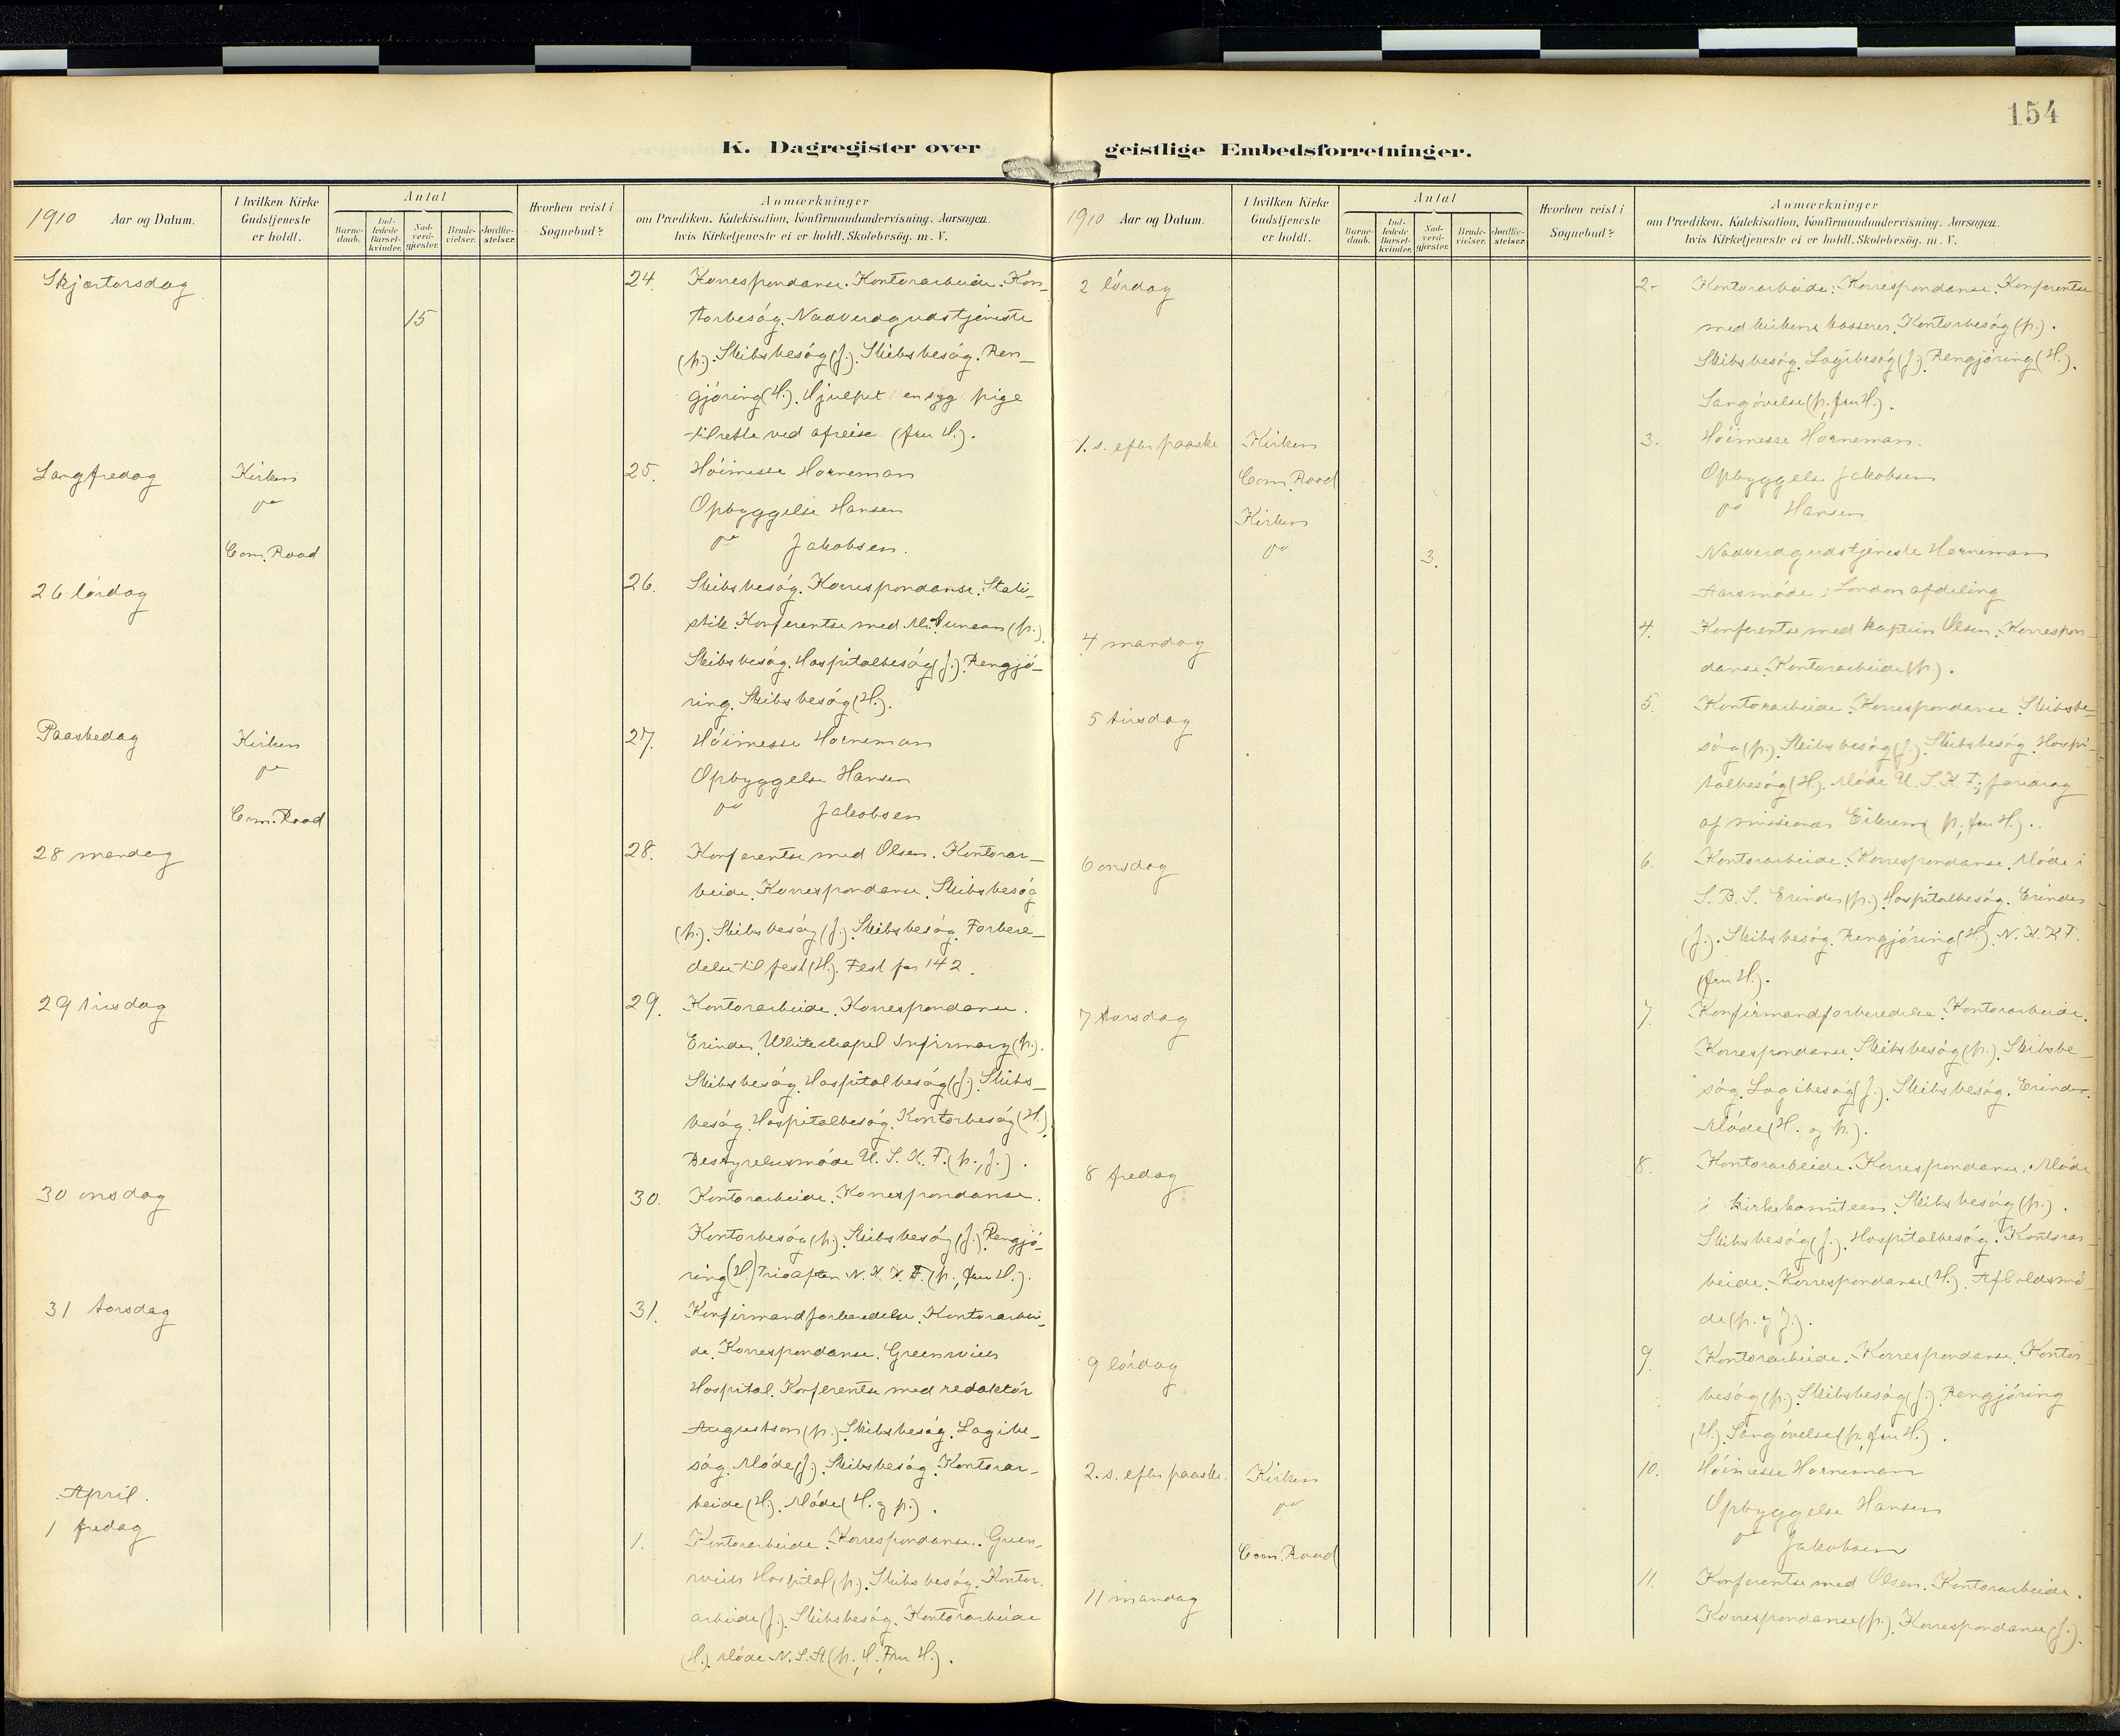 154
K. Dagregister over geistlige Embedsforretninger.
1910 Aar og Datum.
I hvilken Kirke Gudstjeneste er holdt.
Antal
Barne-daab.
Ind-ledede Barsel-kvinder.
Nad-verd-gjester.
Brude-vielser.
Jordfæ-stelser.
Hvorhen reist i Sognebud?
Anmærkninger
om Prædiken, Katekisation, Konfirmandundervisning. Aarsagen,
hvis Kirketjeneste ei er holdt. Skolebesög. m. V.
Skjærtorsdag
15
24. Korrespondanse. Kontorarbeide. Kon-
torbesóg. Nadverdgudstjeneste
(p.). Skibsbesóg (J.). Skibsbesóg. Ren-
gjóring (H.). Hjulpet en syg pige
tilrette ved afreise (fru H.).
Langfredag Kirken
25. Hóimesse Horneman
do Opbyggelse Hansen
Com. Road do Jakobsen.
26 lórdag
26. Skibsbesóg. Korrespondanse. Stati-
stik. Konferentse med Mr. Duncan (p.).
Skibsbesóg. Hospitalbesóg (J.). Rengjó-
ring. Skibsbesóg (H.).
Paaskedag Kirken
27. Hóimesse Horneman
do Opbyggelse Hansen
Com. Road do Jakobsen
28 mandag
28. Konferentse med Olsen. Kontorar-
beide. Korrespondanse. Skibsbesóg
(p.). Skibsbesóg (J.). Skibsbesóg. Forbere-
delse til fest (H.). Fest for 142.
29 tirsdag
29. Kontorarbeide. Korrespondanse.
Erinder. Whitechapel Infirmary (p.).
Skibsbesóg. Hospitalbesóg (J.). Skibs-
besóg. Hospitalbesóg. Kontorbesóg (H.).
Bestyrelsesmóde U. S. K. F. (p., J.).
30 onsdag
30. Kontorarbeide. Korrespondanse.
Kontorbesóg (p.). Skibsbesóg (J.). Rengjó-
ring (H.) Trioaften N. K. K. F. (p., fru H.).
31 torsdag
31. Konfirmandforberedelse. Kontorarbei-
de. Korrespondanse. Greenwich
Hospital. Konferentse med redaktór
Augustson (p.). Skibsbesóg. Logibe-
sóg. Móde (J.). Skibsbesóg. Kontorar-
beide (H.). Móde (H. og p.).
April.
1 fredag
1. Kontorarbeide. Korrespondanse. Green-
wich Hospital (p.). Skibsbesóg. Kontor-
arbeide (J.). Skibsbesóg. Kontorarbeide
(H.). Móde N. S. A. (p., H., Fru H.).
1910 Aar og Datum.
I hvilken Kirke Gudstjeneste er holdt.
Antal
Barne-daab.
Ind-ledede Barsel-kvinder.
Nad-verd-gjester.
Brude-vielser.
Jordfæ-stelser.
Hvorhen reist i Sognebud?
Anmærkninger
om Prædiken, Katekisation, Konfirmandundervisning. Aarsagen,
hvis Kirketjeneste ei er holdt. Skolebesög. m. V.
2 lórdag
2. Kontorarbeide. Korrespondanse. Konferentse
med kirkens kasserer. Kontorbesóg (p.).
Skibsbesóg. Logibesóg (J.). Rengjóring (H.).
Sangóvelse (p. fru H.).
1. s. efter paaske Kirken
3. Hóimesse Horneman.
Com. Road Opbyggelse Jakobsen
Kirken do Hansen
do 3. Nadverdgudstjeneste Horneman
Aarsmóde; London afdeling
4 mandag
4. Konferentse med kaptein Olsen. Korrespon-
danse. Kontorarbeide (p.).
5 tirsdag
5. Kontorarbeide. Korrespondanse. Skibsbe-
sóg (p.). Skibsbesóg (J.). Skibsbesóg. Hospi-
talbesóg (H.). Móde U. S. K. F.; foredrag
af missionær Eikrem (p., fru H.).
6 onsdag
6. Kontorarbeide. Korrespondanse. Móde i
S. B. S. Erinder (p.). Hospitalbesóg. Erinder
(J.). Skibsbesóg. Rengjóring (H.). N. K. K. F.
(fru H.).
7 torsdag
7. Konfirmandforberedelse. Kontorarbeide.
Korrespondanse. Skibsbesóg (p.). Skibsbe-
sóg. Logibesóg (J.). Skibsbesóg. Erinder.
Móde (H. og p.).
8 fredag
8. Kontorarbeide. Korrespondanse. Móde
i kirkekomiteen. Skibsbesóg (p.).
Skibsbesóg (J.). Hospitalbesóg. Kontorar-
beide. Korrespondanse (H.). Afholdsmó-
de (p. og J.).
9 lórdag
9. Kontorarbeide. Korrespondanse. Kontor-
besóg (p.). Skibsbesóg (J.). Rengjóring
(H.). Sangóvelse (p., fru H.).
2. s. efter paaske. Kirken
10. Hóimesse Horneman
do Opbyggelse Hansen
Com. Road do Jakobsen
11 mandag
11. Konferentse med Olsen. Kontorarbeide.
Korrespondanse (p.). Korrespondanse (J.).